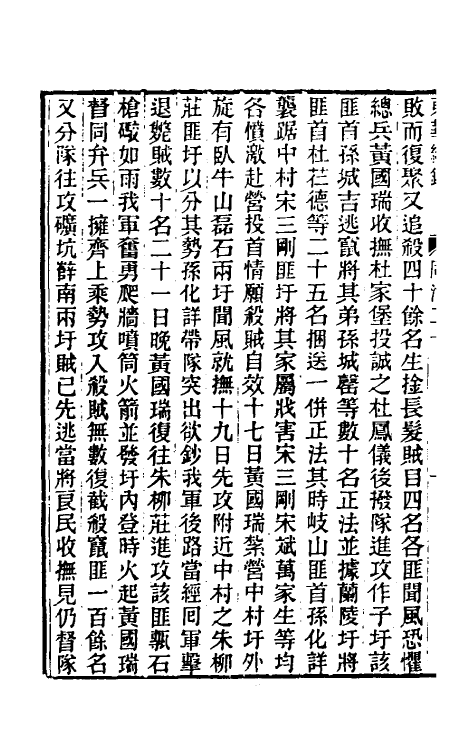 敗而復聚又追殺四十餘名生拴長髮賊目四名各匪聞風恐懼
總兵黃國瑞收撫杜家堡投誠之杜鳳儀後撥隊進攻作子圩該
匪首孫城吉逃竄將其弟孫城罄等數十名正法並據蘭陵圩將
匪首杜茳德等二十五名捆送一併正法其時岐山匪首孫化詳
襲踞中村宋三剛匪圩將其家屬戕害宋三剛宋斌萬家生等均
各憤激赴營投首情願殺賊自效十七日黃國瑞紮營中村圩外
旋有臥牛山磊石兩圩聞風就撫十九日先攻附近中村之朱柳
莊匪圩以分其勢孫化詳帶隊突出欲鈔我軍後路當經囘軍擊
退斃賊數十名二十一日晚黃國瑞復往朱柳莊進攻該匪甎石
槍礮如雨我軍奮勇爬牆噴筒火箭並發圩內登時火起黃國瑞
督同弁兵一擁齊上乘勢攻入殺賊無數復截殺竄匪一百餘名
又分隊往攻礦坑薛南兩圩賊已先逃當將良民收撫見仍督隊